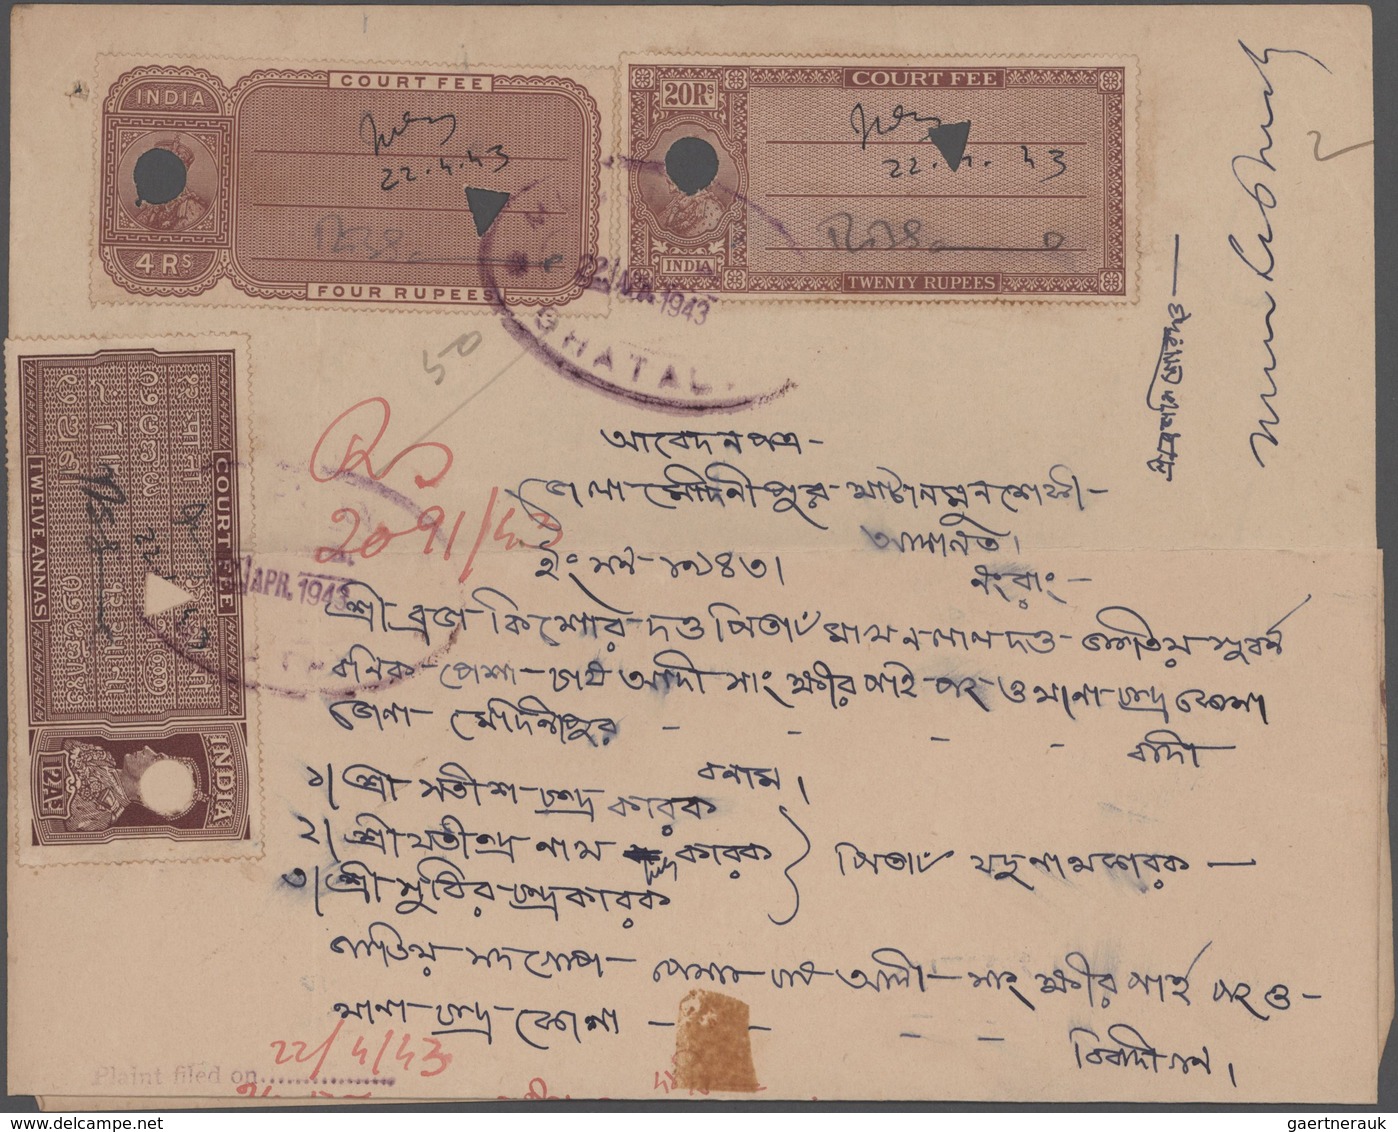 COURT FEE
INDIA
22.4.43
4 RS
FOUR RUPEES
COURT FEE
20RS
22.4.43
INDIA
TWENTY RUPEES
22 APR. 1943
GHATAL
50
2
COURT FEE
TWELVE ANNAS
INDIA
12 AS
APR. 1943
Rs
2091/43
আবেদন পত্র-
জেলা মেদিনীপুর ঘাটাল মুনশেফী-
আদালত।
ইং সন- ১৯৪৩। নং বাং-
শ্রী ব্রজ কিশোর দত্ত পিতাং মাখনলাল দত্ত- জাতিয় সুবর্ণ
বনিক- পেশা- চাষ আদী সাং ক্ষীরপাই- পং ও থানা- চন্দ্রকোনা
জেলা মেদিনীপুর - - - -
বাদী
বনাম।
১। শ্রী সতীশ চন্দ্র কারক
২। শ্রী যতীন্দ্র নাথ কারক
৩। শ্রী সুধির চন্দ্র কারক
পিতাং যদুনাথ কারক —
জাতিয়- সদগোপ- পেশা চাষ আদী- সাং ক্ষীরপাই পং ও-
থানা- চন্দ্রকোনা - - - -
বিবাদীগন।
Plaint filed on 22/4/43
gaertnerauk